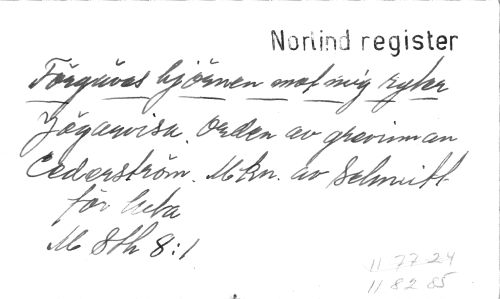 Norlind register
Förgäves björnen mot mig ryter
Jägarvisa. Orden av grevinnan
Cederström. Mkn. av Schmidt
för
M Sth 8:1
11 77 24
11 82 85